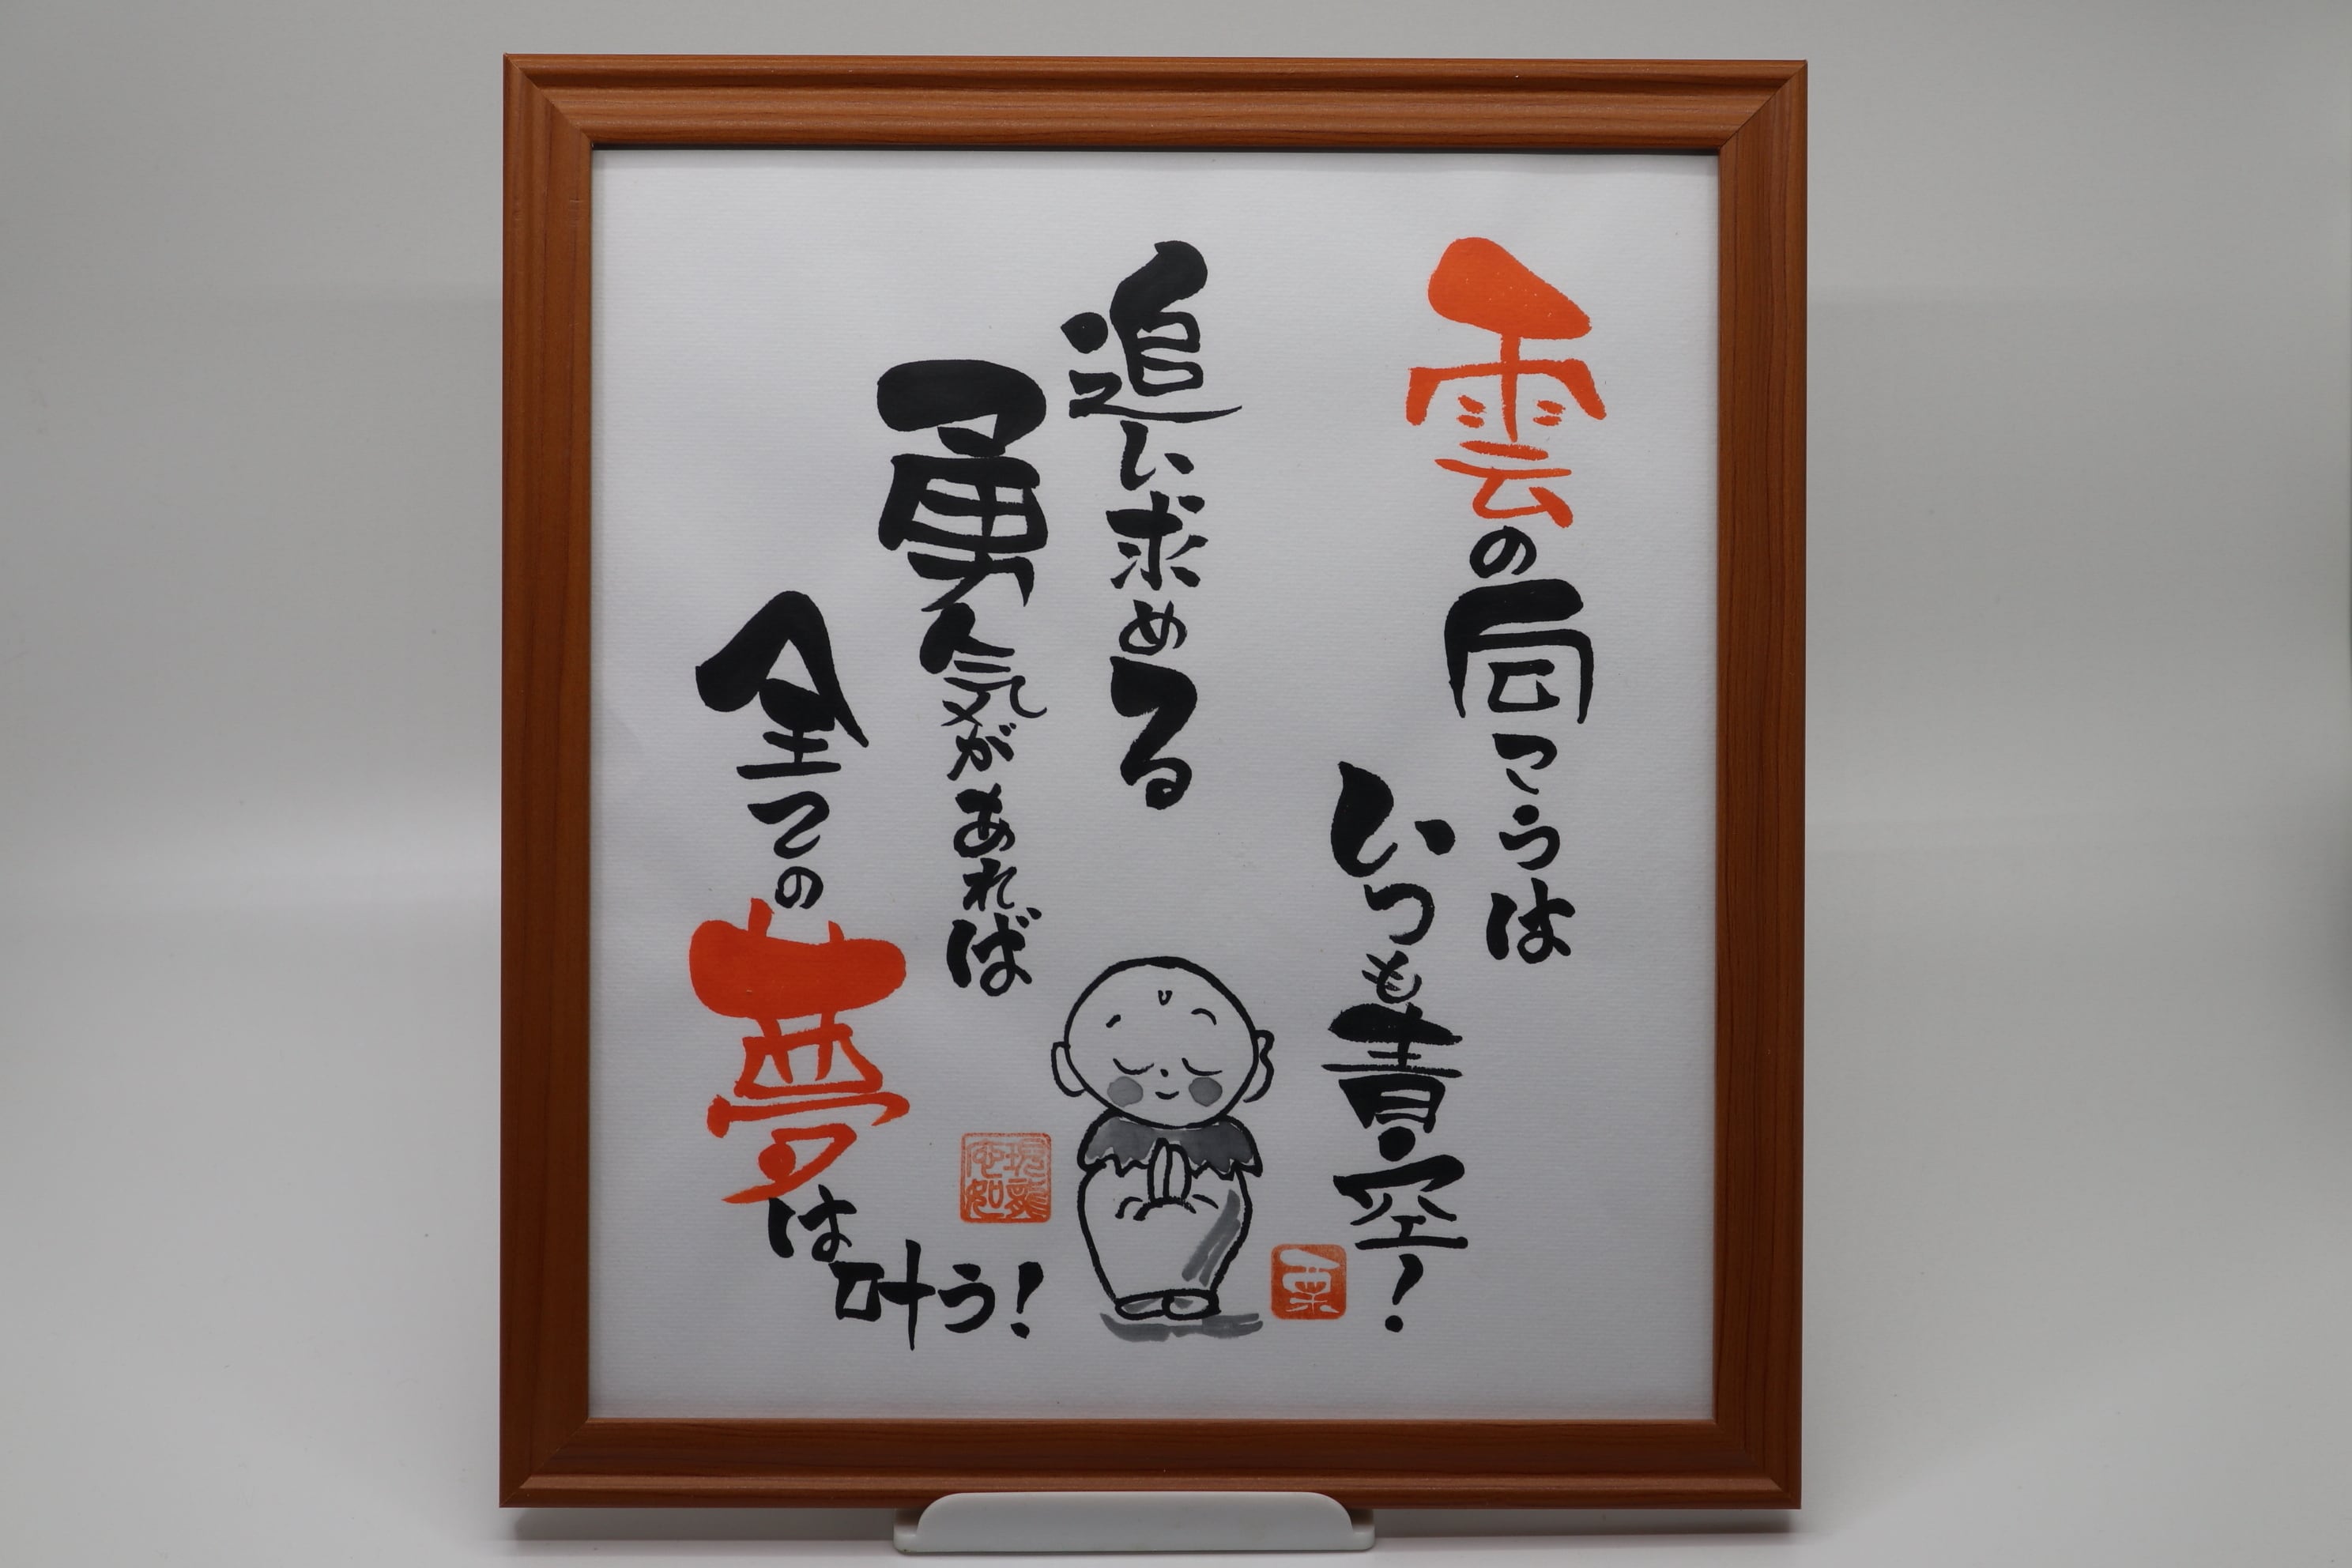 雲の向こうは
いつも青空!
追い求める
勇気があれば
全ての
夢は
叶う!